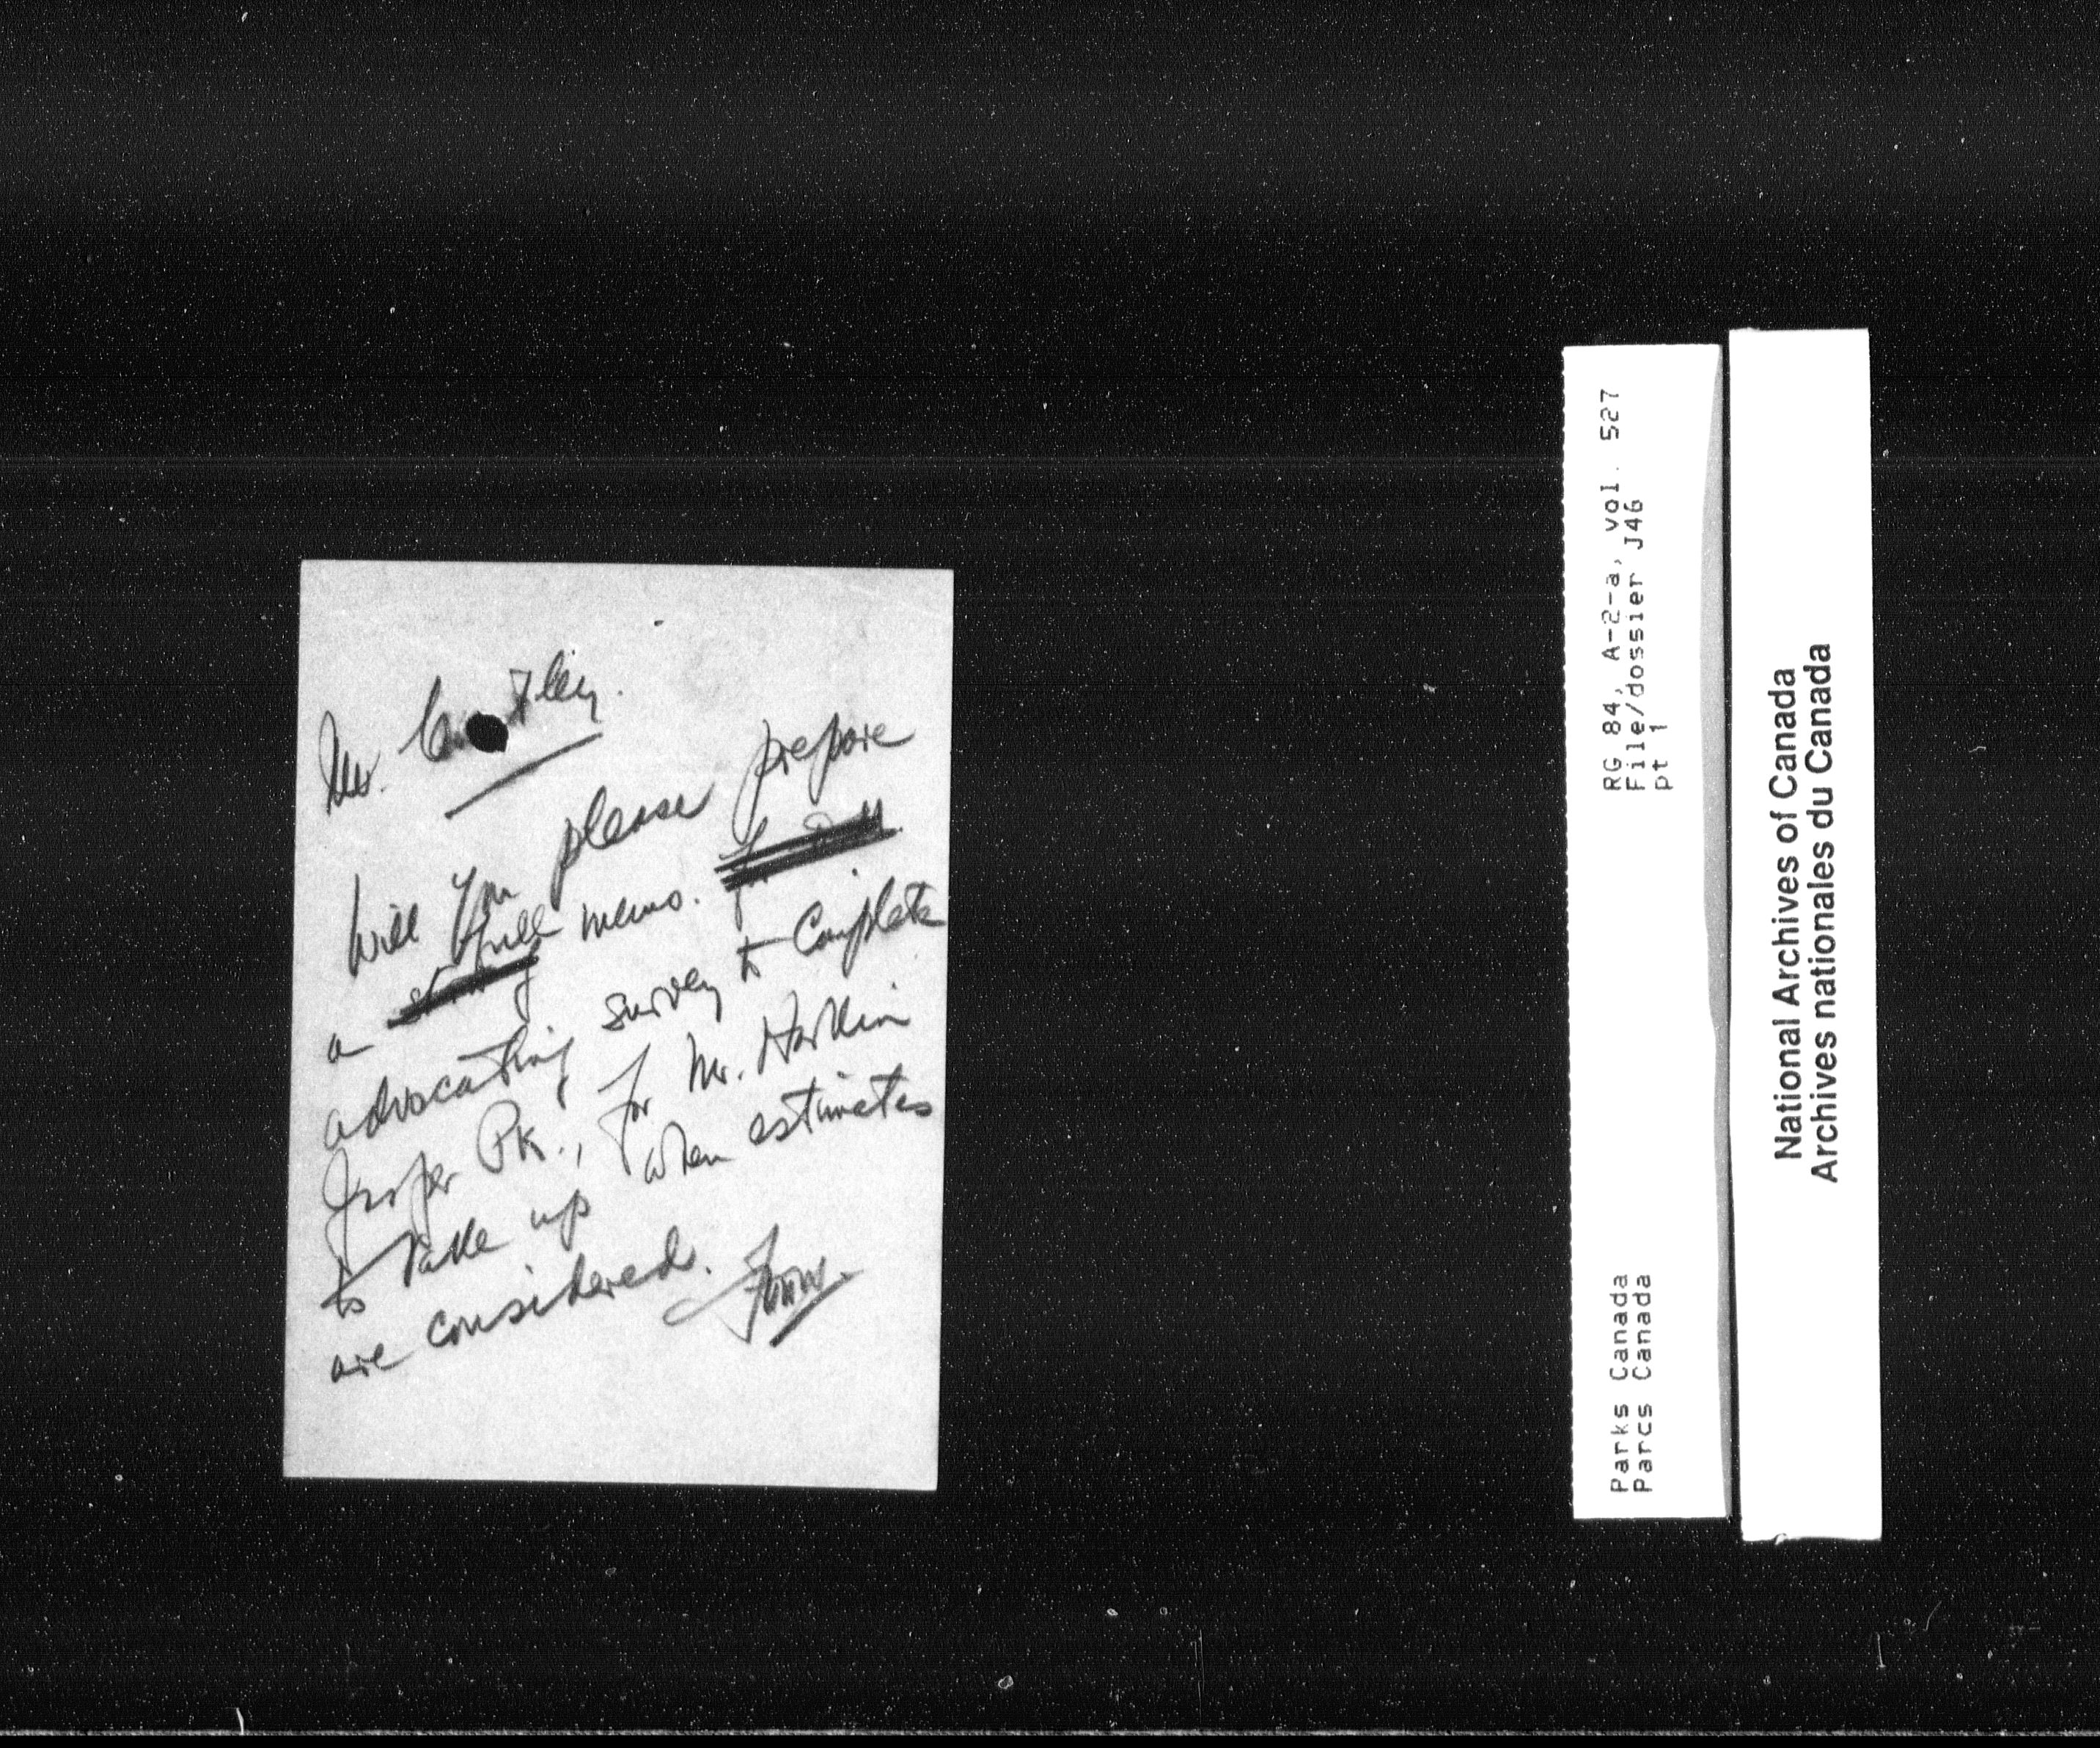 Mr.
Will you please prepare
a full memo.
advocating survey to complete
Jasper Pk., for Mr. Harkin
to take up when estimates
are considered.
RG 84, A-2-a, vol. 527
File/dossier J46
pt 1
Parks Canada
Parcs Canada
National Archives of Canada
Archives nationales du Canada